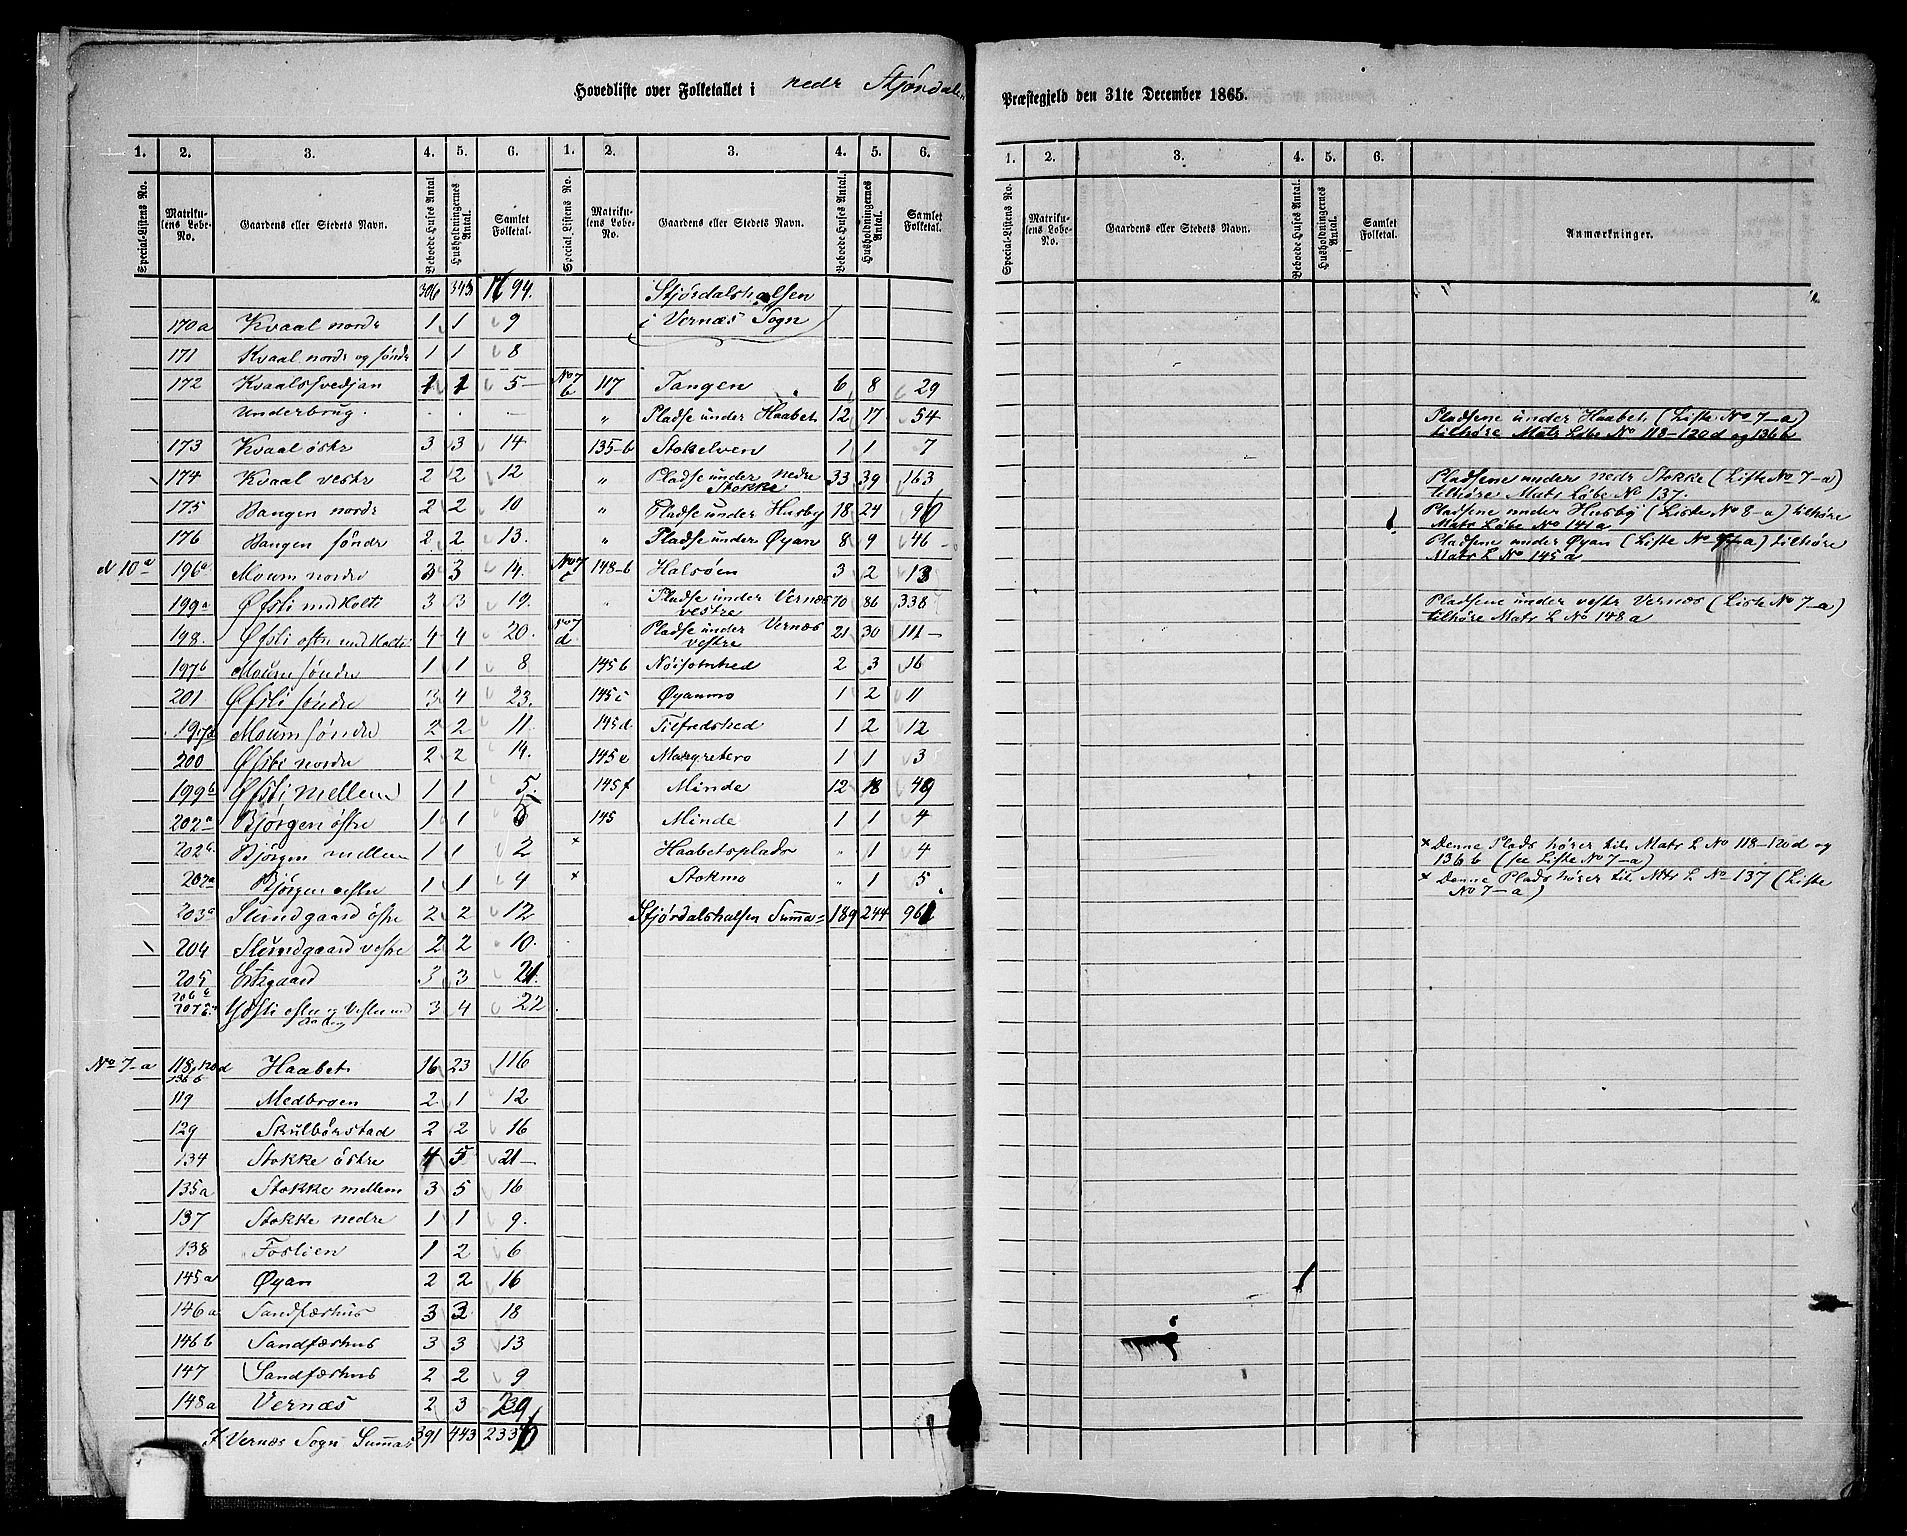 Hovedliste over Folketallet i nedr Stjørdalen Præstegjeld den 31te December 1865.
1. 2. 3. 4. 5. 6. 1. 2. 3. 4. 5. 6.
Special-Listens No. Matrikulens Løbe-No. Gaardens eller Stedets Navn. Beboede Huses Antal Husholdningernes Antal. Samlet Folketal. Special-Listens No. Matrikulens Løbe-No. Gaardens eller Stedets Navn. Beboede Huses Antal. Husholdningernes Antal. Samlet Folketal.
306 343 1694.
170a Kvaal nordr 1 1 9
171 Kvaal nordr og søndr 1 1 8
172 Kvaalssvedjan 1 1 5
Underbrug.
173 Kvaal østr 3 3 14
174 Kvaal vestr 2 2 12
175 Vangen nordr 2 2 10
176 Vangen søndr 2 2 13.
N 10a 196a Moum nordre 3 3 14.
199a Øfsti med Holti 3 3 19.
198. Øfsti østre med Holti 4 4 20.
197b Moum søndre 1 1 8
201 Øfsti søndre 3 4 23.
197d Moum søndre 2 2 11.
200 Øfsti nordre 2 2 14.
199b Øfsti mellem 1 1 5.
202a Bjørgen østre 1 1 5
202b. Bjørgen mellem 1 1 2
207a Bjørgen vestre 1 1 4
203a Slundgaard østre 2 2 12
204 Slundgaard vestre 2 2 10.
205 Eidsgaard 3 3 21.
206b
207a 3 4 22
No 7-a 118, 120d 136b Haabet 16 23 116
119 Medbroen 2 1 12
129 Skulbørstad 2 2 16
134 Stokke østre 4 5 21
135a Stokke mellem 3 5 16
137 Stokke nedre 1 1 9.
138 Foslien 1 2 6
145a Øyan 2 2 16
146a Sandfærhus 3 3 18
146b Sandfærhus 3 3 13
147 Sandfærhus 2 2 9
148a Vernæs 2 3 239
I Vernæs Sogn Summa 391 443 2336
Stjørdalshalsen
i Vernæs Sogn
No 7 b 117 Tangen 6 8 29
" Pladse under Haabet 12 17 54
135-b Stokelven 1 1 7
" Pladse under nedre Stokke 33 39 163
" Pladse under Husby 18 24 96
" Pladse under Øyan 8 9 46
No 7 c 148-b Halsøen 3 2 13
" Pladse under Vernæs vestre 70 86 338
No 7 d Pladse under Vernæs vestre 21 30 111
145b Nøisomhed 2 3 16
145c Øyanmo 1 2 11
145d Tilfredshed 1 2 12
145e Margretero 1 1 3
145f Minde 12 18 49
145 Minde 1 1 4
× Haabetsplads " 1 4
× Stokmo " 1 5
Stjørdalshalsen Summa = 189 244 961
1. 2. 3. 4. 5. 6.
Special-Listens No. Matrikulens Løbe-No. Gaardens eller Stedets Navn. Beboede Huses Antal. Husholdningernes Antal. Samlet Folketal. Anmærkninger.
Pladsene under Haabet (Liste No 7-a)
tilhøre Matr Løbe No 118-120d og 136b
Pladsene under nedr Stokke (Liste No 7-a)
tilhøre Matr Løbe No 137.
Pladsene under Husby (Liste No 8-a) tilhøre
Matr Løbe No 141a
Pladsene under Øyan (Liste No 7-a) tilhøre
Matr L No 145a
Pladsene under vestr Vernæs (Liste No 7-a)
tilhøre Matr L No 148a
× Denne Plads hører til Matr L No 118-120d og
136b (see Liste No 7-a)
× Denne Plads hører til Mtr L No 137 (Liste
No 7-a)